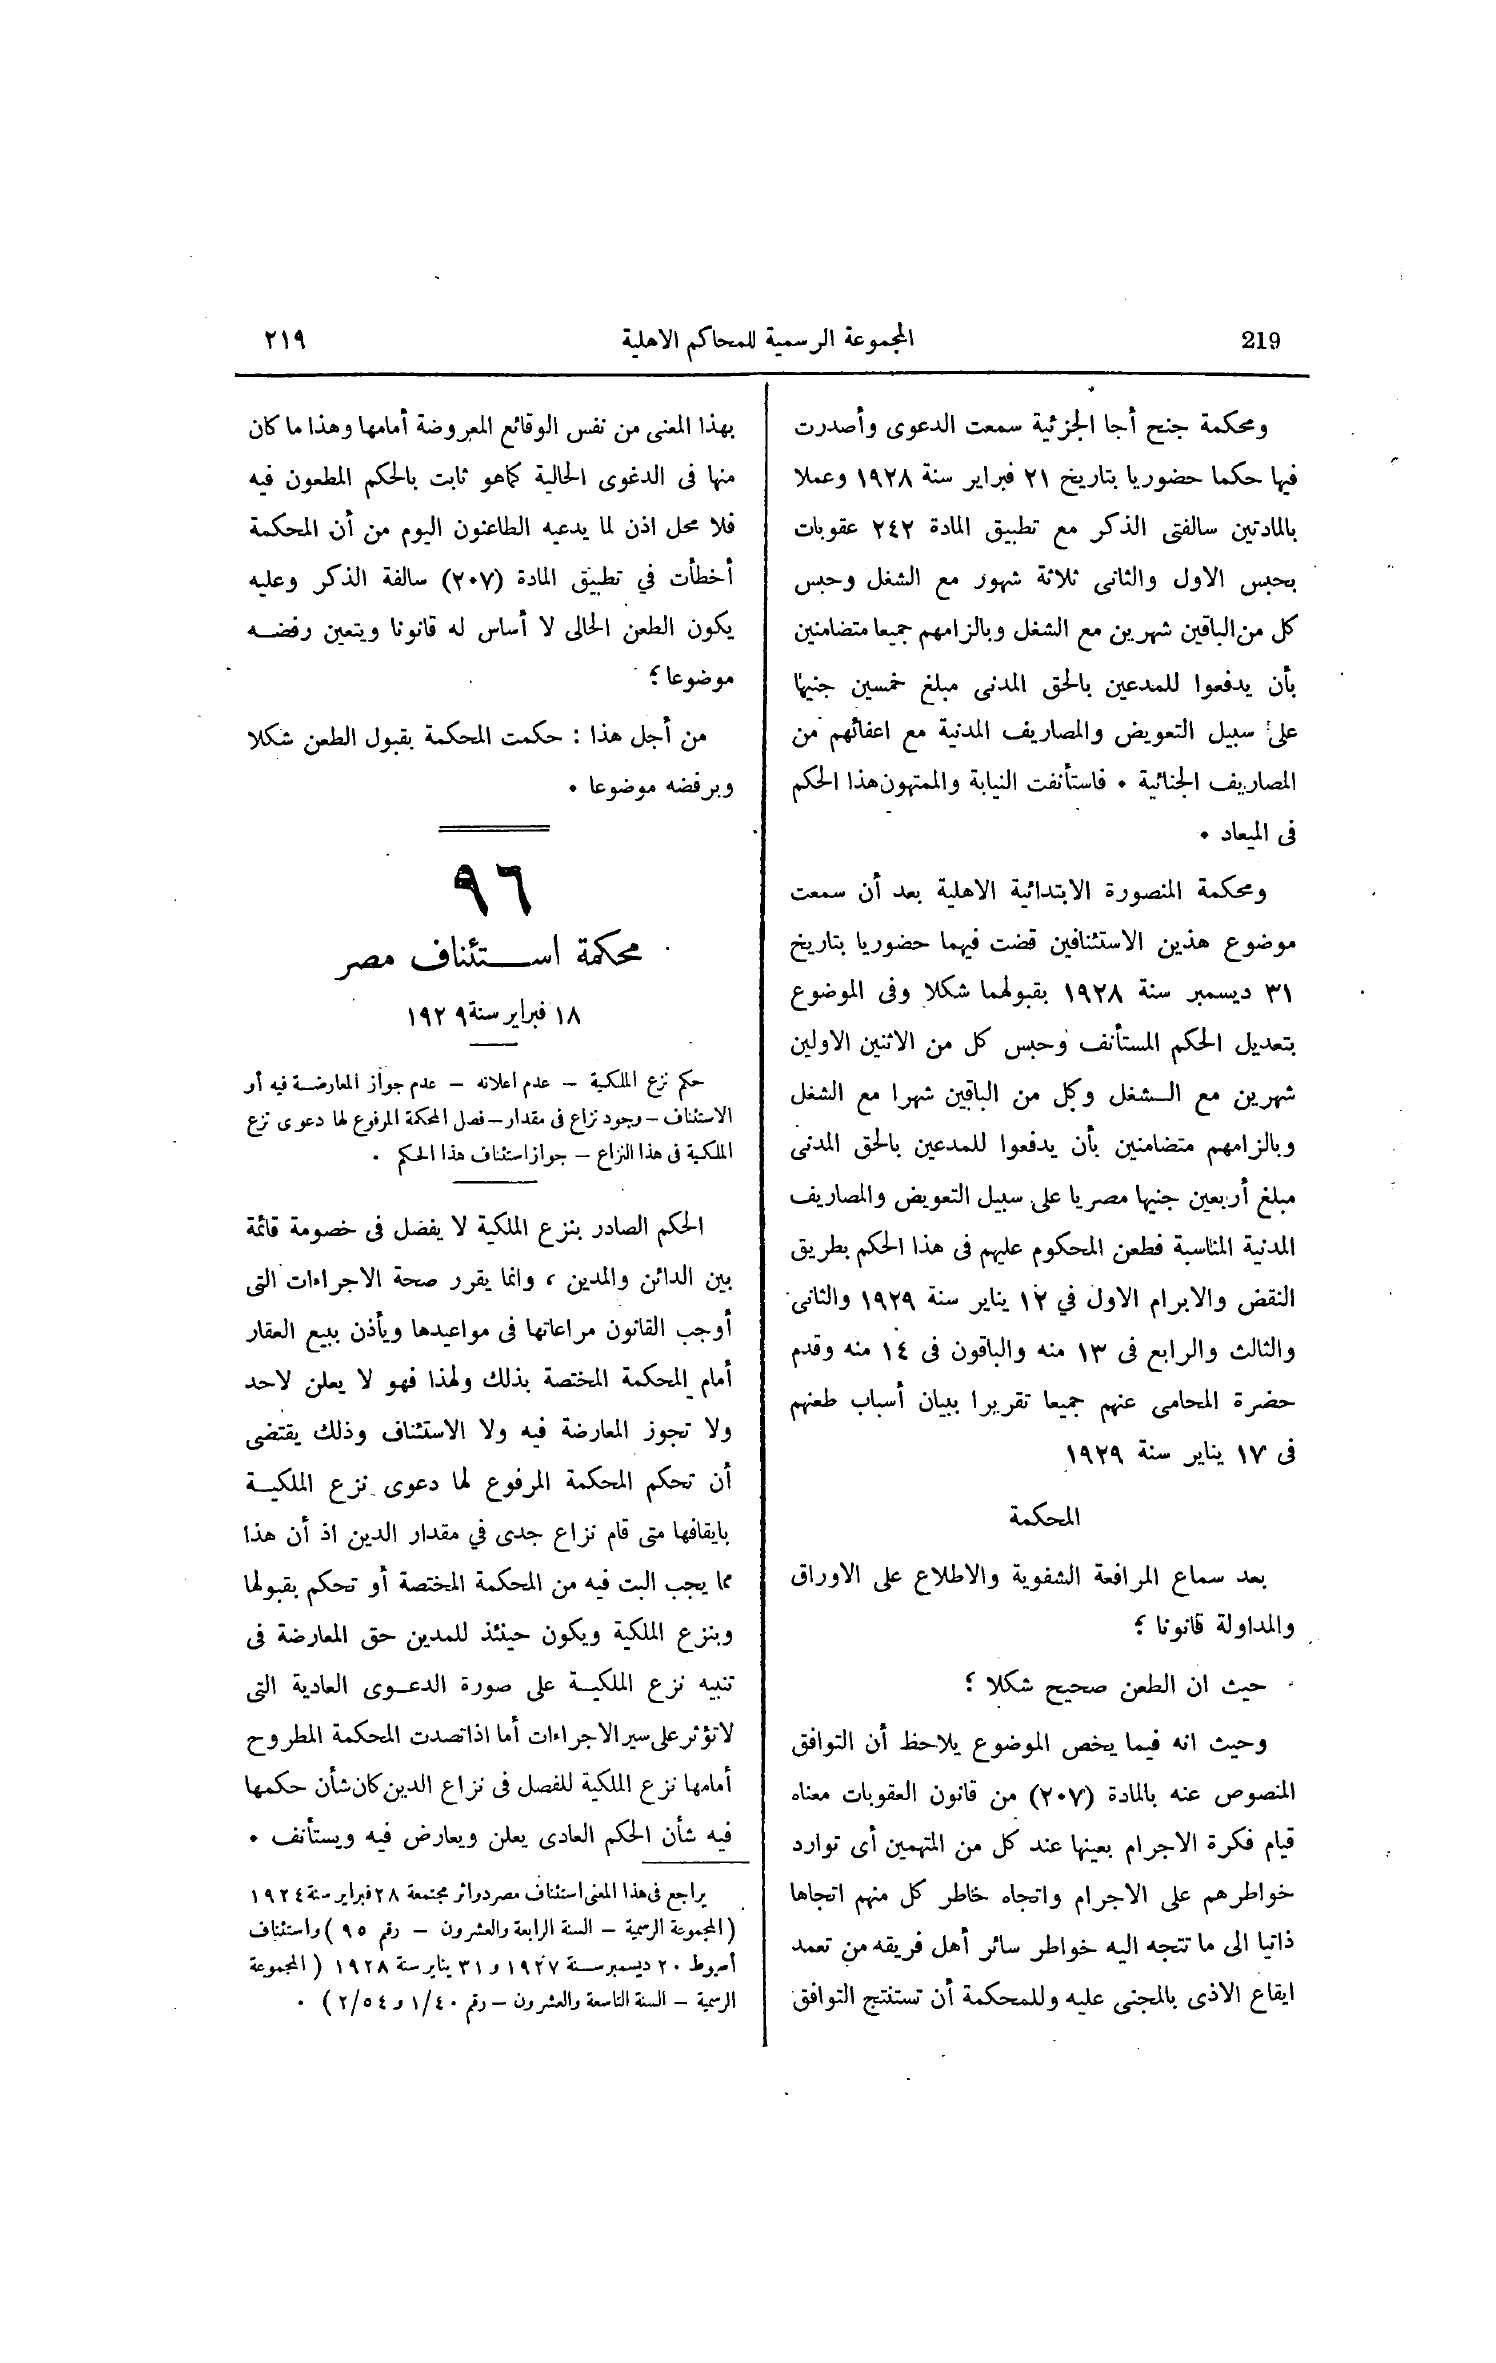 219
المجموعة الرسمية للمحاكم الاهلية
٢١٩
ومحكمة جنح أجا الجزئية سمعت الدعوى وأصدرت
فيها حكما حضوريا بتاريخ ٢١ فبراير سنة ١٩٢٨ وعملا
بالمادتين سالفتى الذكر مع تطبيق المادة ٢٤٢ عقوبات
بحبس الاول والثانى ثلاثة شهور مع الشغل وحبس
كل من الباقين شهرين مع الشغل وبالزامهم جميعا متضامنين
بأن يدفعوا للمدعين بالحق المدنى مبلغ خمسين جنيها
على سبيل التعويض والمصاريف المدنية مع اعفائهم من
المصاريف الجنائية . فاستأنفت النيابة والمتهون هذا الحكم
فى الميعاد .
ومحكمة المنصورة الابتدائية الاهلية بعد أن سمعت
موضوع هذين الاستئنافين قضت فيهما حضوريا بتاريخ
٣١ ديسمبر سنة ١٩٢٨ بقبولهما شكلا وفى الموضوع
بتعديل الحكم المستأنف وحبس كل من الاثنين الاولين
شهرين مع الشغل وكل من الباقين شهرا مع الشغل
وبالزامهم متضامنين بأن يدفعوا للمدعين بالحق المدنى
مبلغ أربعين جنيها مصريا على سبيل التعويض والمصاريف
المدنية المناسبة فطعن المحكوم عليهم فى هذا الحكم بطريق
النقض والابرام الاول في ١٢ يناير سنة ١٩٢٩ والثانى
والثالث والرابع فى ١٣ منه والباقون فى ١٤ منه وقدم
حضرة المحامى عنهم جميعا تقريرا ببيان أسباب طعنهم
فى ١٧ يناير سنة ١٩٢٩
المحكمة
بعد سماع المرافعة الشفوية والاطلاع على الاوراق
والمداولة قانونا ؛
حيث ان الطعن صحيح شكلا ؛
وحيث انه فيما يخص الموضوع يلاحظ أن التوافق
المنصوص عنه بالمادة (٢٠٧) من قانون العقوبات معناه
قيام فكرة الاجرام بعينها عند كل من المتهمين أى توارد
خواطرهم على الاجرام واتجاه خاطر كل منهم اتجاها
ذاتيا الى ما تتجه اليه خواطر سائر أهل فريقه من تعمد
ايقاع الاذى بالمجنى عليه وللمحكمة أن تستنتج التوافق
بهذا المعنى من نفس الوقائع المعروضة أمامها وهذا ما كان
منها فى الدغوى الحالية كما هو ثابت بالحكم المطعون فيه
فلا محل اذن لما يدعيه الطاعنون اليوم من أن المحكمة
أخطأت في تطبيق المادة (٢٠٧) سالفة الذكر وعليه
يكون الطعن الحالى لا أساس له قانونا ويتعين رفضه
موضوعا ؛
من أجل هذا : حكمت المحكمة بقبول الطعن شكلا
وبرفضه موضوعا .
٩٦
محكمة استئناف مصر
١٨ فبراير سنة ١٩٢٩
حكم نزع الملكية – عدم اعلانه – عدم جواز المعارضة فيه أو
الاستئناف – وجود نزاع فى مقدار – فصل المحكمة المرفوع لها دعوى نزع
الملكية فى هذا النزاع – جواز استئناف هذا الحكم .
الحكم الصادر بنزع الملكية لا يفضل فى خصومة قائمة
بين الدائن والمدين ، وانما يقرر صحة الاجراءات التى
أوجب القانون مراعاتها فى مواعيدها ويأذن ببيع العقار
أمام المحكمة المختصة بذلك ولهذا فهو لا يعلن لاحد
ولا تجوز المعارضة فيه ولا الاستئناف وذلك يقتضى
أن تحكم المحكمة المرفوع لها دعوى نزع الملكية
بايقافها متى قام نزاع جدى في مقدار الدين اذ أن هذا
مما يجب البت فيه من المحكمة المختصة أو تحكم بقبولها
وبنزع الملكية ويكون حينئذ للمدين حق المعارضة فى
تنبيه نزع الملكية على صورة الدعوى العادية التى
لا تؤثر على سير الاجراءات أما اذا تصدت المحكمة المطروح
أمامها نزع الملكية للفصل فى نزاع الدين كان شأن حكمها
فيه شأن الحكم العادى يعلن ويعارض فيه ويستأنف .
يراجع فى هذا المعنى استئناف مصر دوائر مجتمعة ٢٨ فبراير سنة ١٩٢٤
(المجموعة الرسمية – السنة الرابعة والعشرون – رقم ٩٥ ) واستئناف
أسيوط ٢٠ ديسمبر سنة ١٩٢٧ و ٣١ يناير سنة ١٩٢٨ ( المجموعة
الرسمية – السنة التاسعة والعشرون – رقم ١/٤٠ و ٢/٥٤ ) .